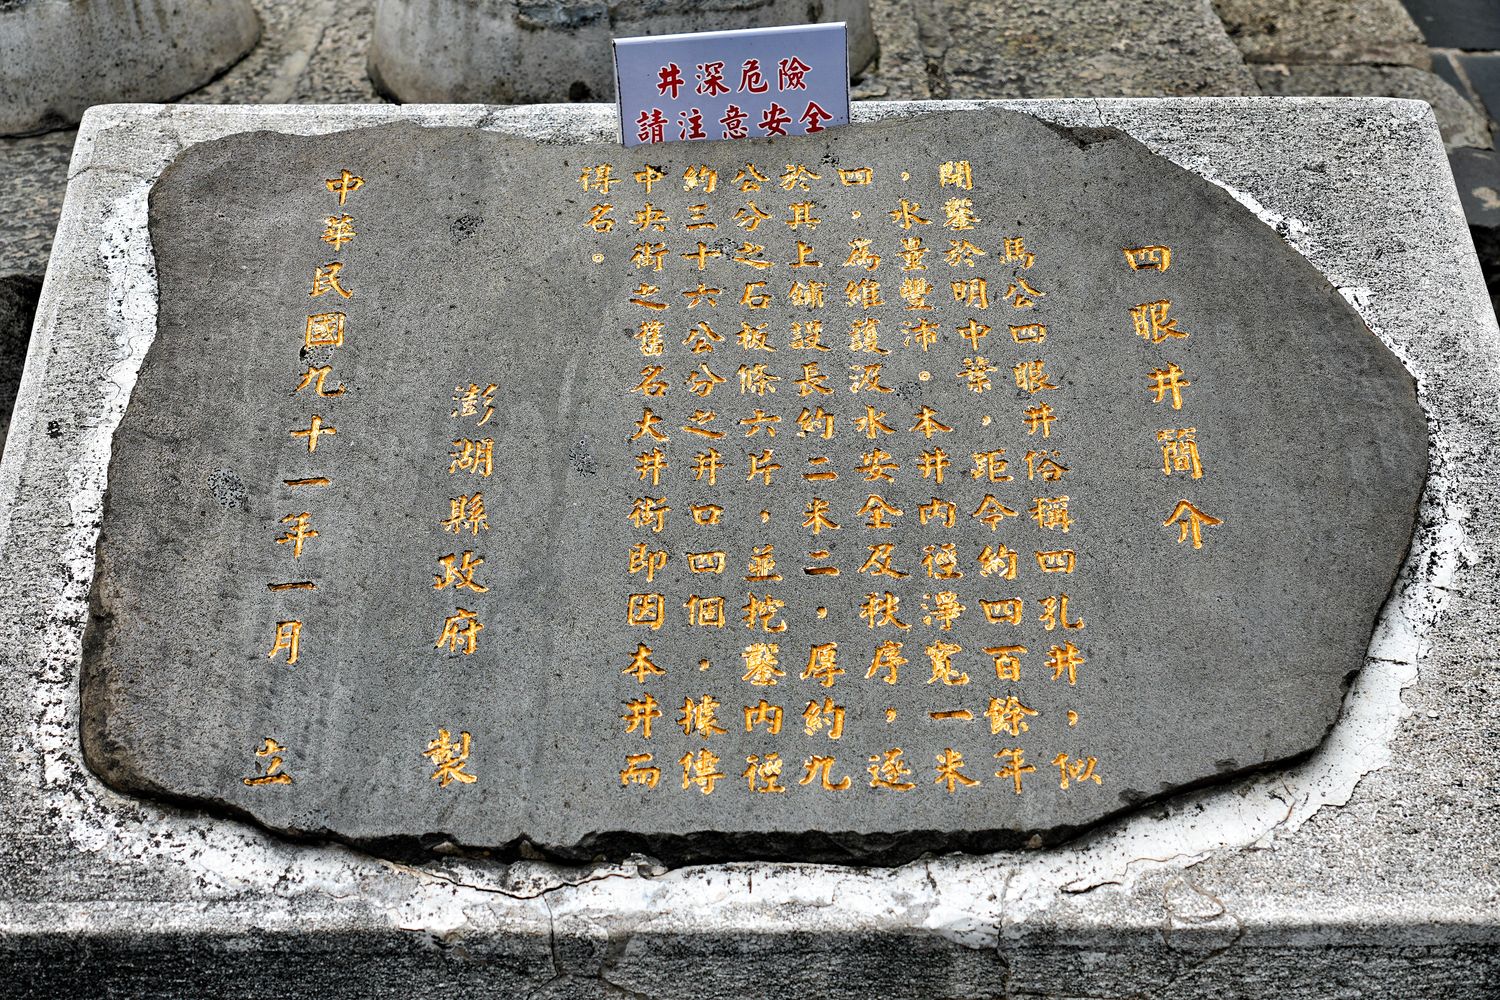 井深危險
請注意安全
四眼井簡介
馬公四眼井俗稱四孔井，似
開鑿於明中葉，距今約四百餘年
，水量豐沛。本井內徑淨寬一米
四，為維護汲水安全及秩序，逐
於其上鋪設長約二米二，厚約九
公分之石板條六片，並挖鑿內徑
約三十六公分之井口四個，據傳
中央街之舊名大井街即因本井而
得名。
澎湖縣政府 製
中華民國九十一年一月 立